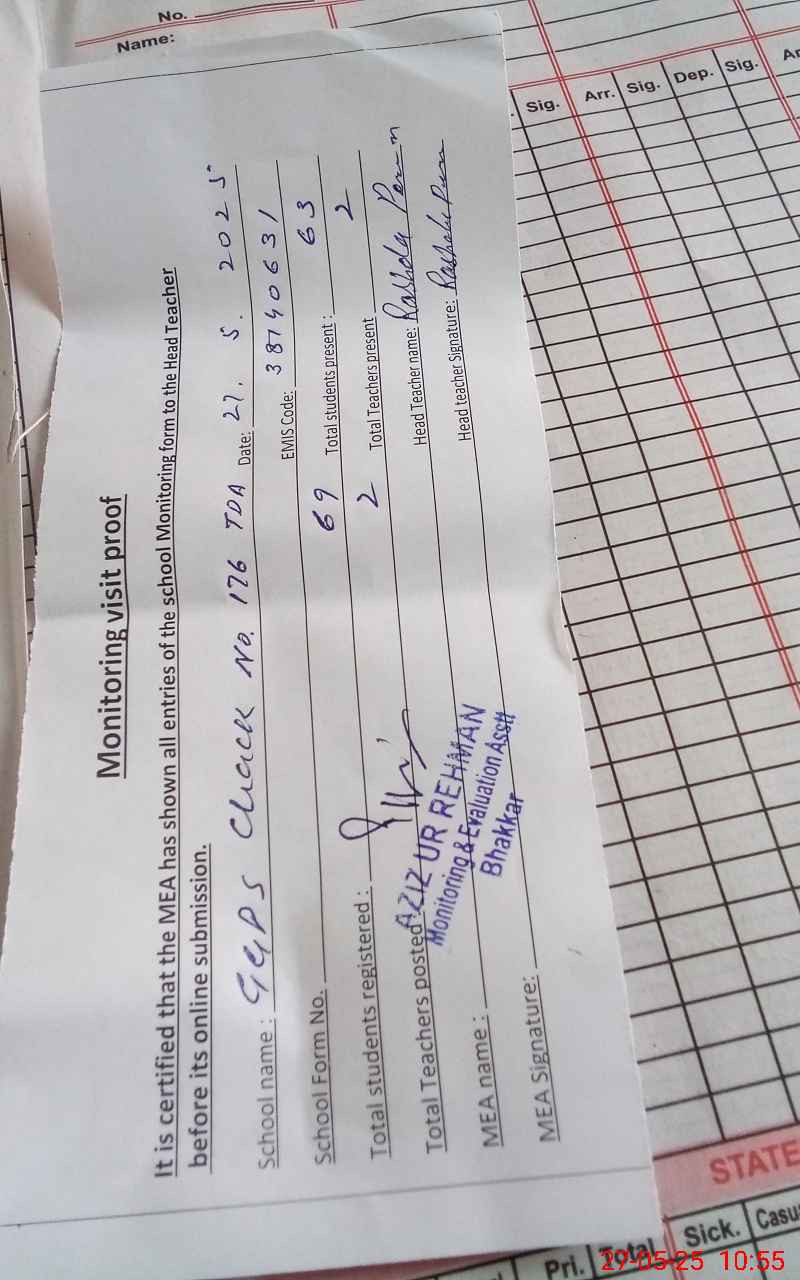 No.
Name:
Sig. Arr. Sig. Dep. Sig.
Monitoring visit proof
It is certified that the MEA has shown all entries of the school Monitoring form to the Head Teacher
before its online submission.
School name : GGPS Chack No. 176 TDA Date: 27. 5. 2025
School Form No. EMIS Code: 38740631
Total students registered : 69 Total students present : 63
Total Teachers posted : 2 Total Teachers present 2
MEA name : Head Teacher name:
MEA Signature: Head teacher Signature:
AZIZ UR REHMAN
Monitoring & Evaluation Asstt
Bhakkar
STATE
Pri. Total Sick. Casu
27-05-25 10:55